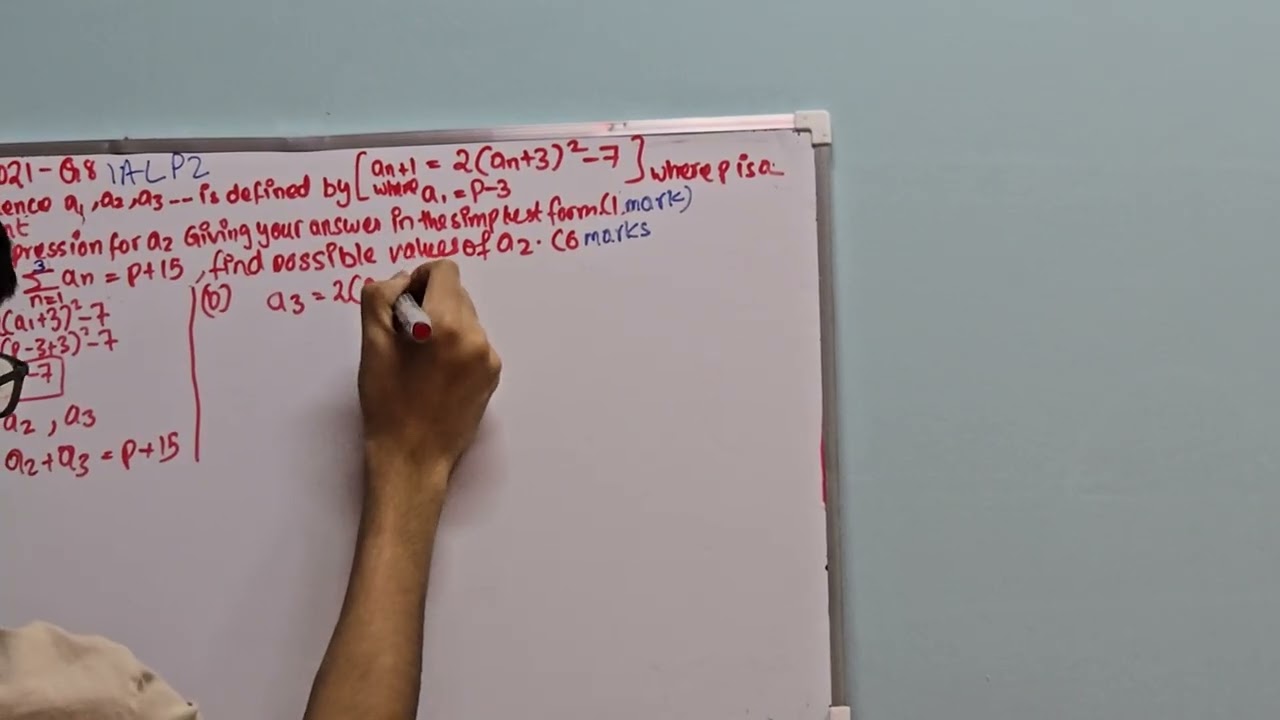 021 - Q8 IALP2
ence a1, a2, a3 -- is defined by [ an+1 = 2(an+3)²-7 ] where p is a
where a1 = p-3
nt
pression for a2 Giving your answer in the simplest form (1 mark)
3
Σ an = p+15, find possible values of a2. (6 marks
n=1
(a1+3)²-7
(p-3+3)²-7
-7
a2, a3
a2+a3 = p+15
(b) a3 = 2(